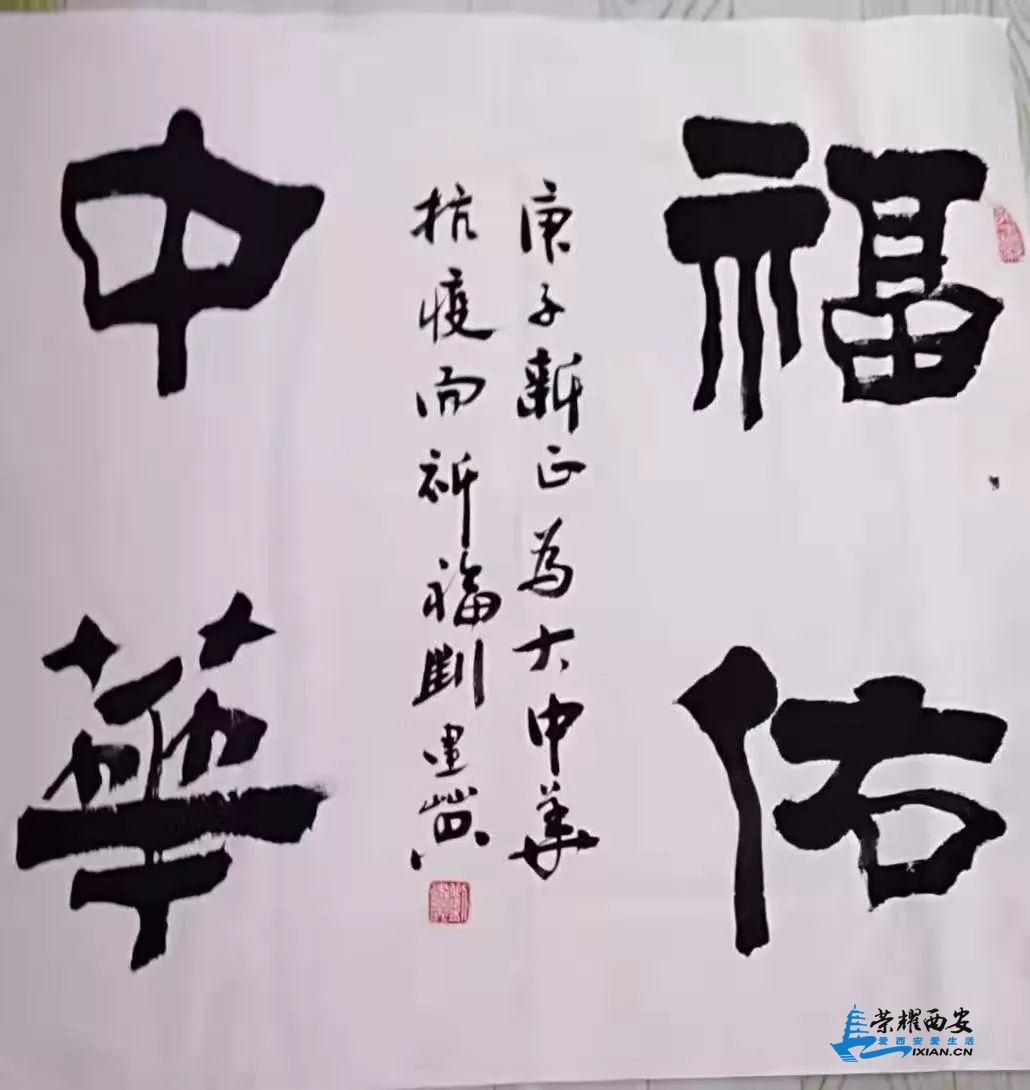 福佑
中華
庚子新正为大中华
抗疫而祈福刘建
荣耀西安
爱西安爱生活
IXIAN.CN